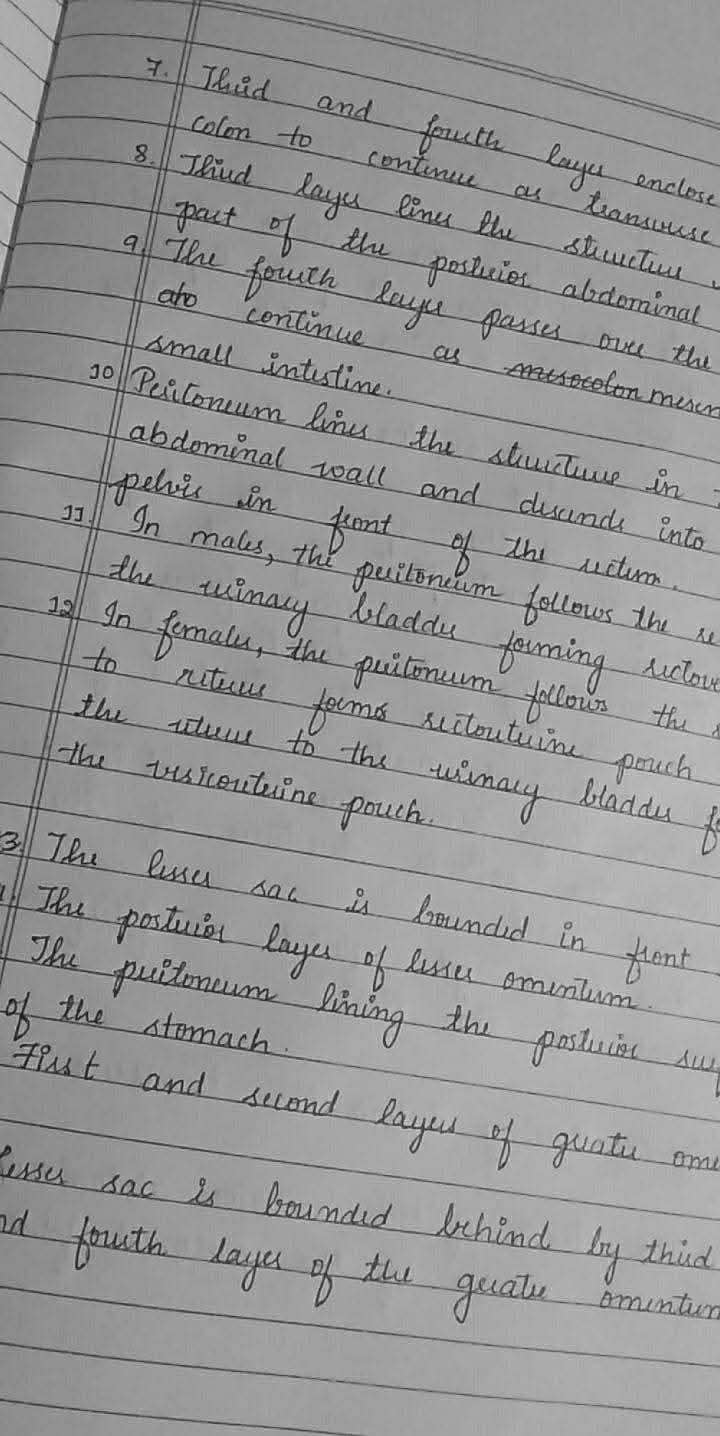 7. Third and fourth layer enclose
colon to continue as transverse
8. Third layer lines the structure
part of the posterior abdominal
9. The fourth layer passes over the
ato continue as mesocolon mesen
small intestine.
10 Peritoneum lines the structure in
abdominal wall and descends into
pelvis in front of the rectum.
11. In males, the peritoneum follows the re
the urinary bladder forming rectove
12 In females, the peritoneum follows the
to uterus forms rectouterine pouch
the uterus to the urinary bladder fo
the vesicouterine pouch.
3. The lesser sac is bounded in front
The posterior layer of lesser omentum.
The peritoneum lining the posterior sur
of the stomach.
First and second layer of greater ome
lesser sac is bounded behind by third
nd fourth layer of the greater omentum